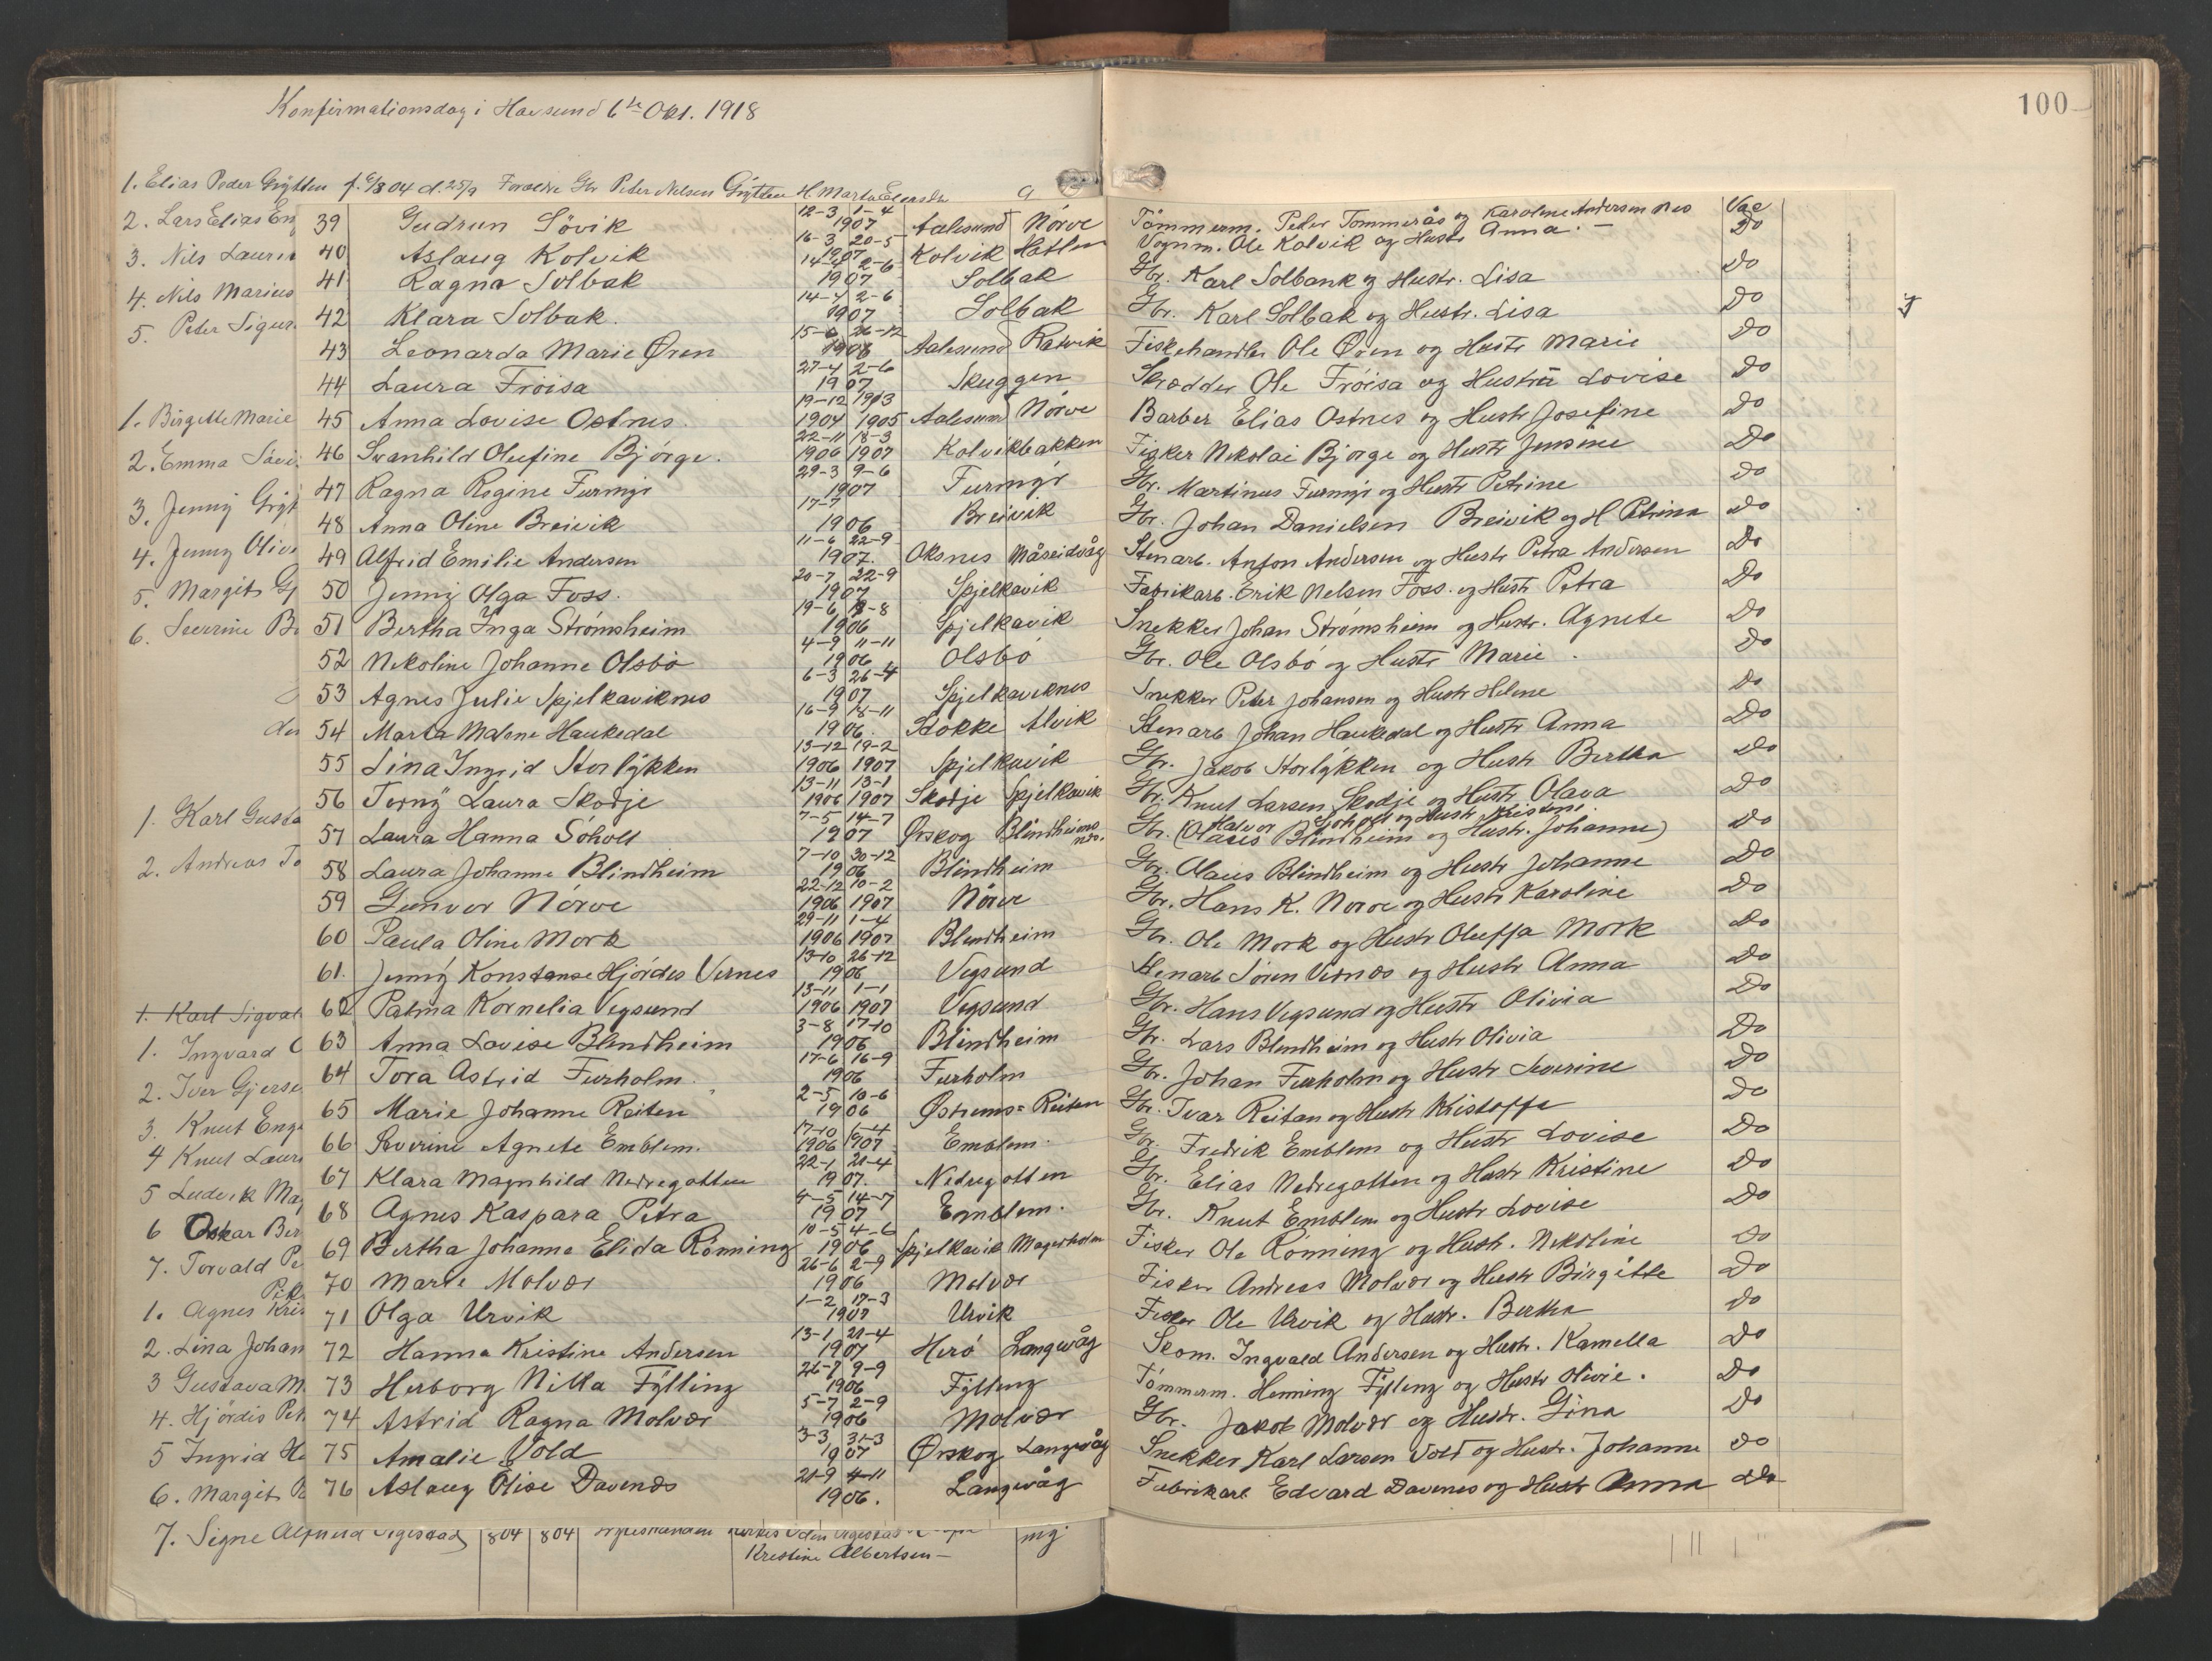 Konfirmationsdag i Havsund 6te Okt. 1918
100
1. Elias Peder Grytten f. 6/3 04 d. 25/9 Forældre Gbr Peter Nilsen Grytten H. Marta
2. Lars Elias
3. Nils
4. Nils Marius
5. Peter Sigur
1. Birgitte Marie
2. Emma Søvi
3. Jenny Gryt
4. Jenny Olive
5. Margit
6. Severine
1. Karl Gusta
2. Andreas To
1. Karl Sigval
1. Ingvard
2. Iver Gjerse
3. Knut Enge
4 Knut Laur
5 Ludvik Mag
6 Oskar Ber
7. Torvald Pe
1. Agnes Kris
2. Lina Johan
3 Gustava M
4. Hjördis Pet
5 Ingrid
6. Margit
39 Gudrun Sövik 12-3 1-4 1907 Aalesund Nörve Tömmerm. Peder Tommerås og Karoline Andersen Nes Vac
40 Aslaug Kolvik 16-3 20-5 1907 Kolvik Hatlen Vognm. Ole Kolvik og Hustr Anna. — Do
41 Ragna Solbak 14-4 2-6 1907 Solbak Gbr. Karl Solbank og Hustr. Lisa Do
42 Klara Solbak. 14-4 2-6 1907 Solbak Gbr. Karl Solbak og Hustr. Lisa Do
43 Leonarda Marie Øren 15-6 26-12 1906 Aalesund Ratvik Fiskehandler Ole Øren og Hustr Marie Do
44 Laura Fröisa 27-4 2-6 1907 Skuggen Skrædder Ole Fröisa og Hustru Lovise Do
45 Anna Lovise Ostnes. 19-12 1904 19/3 1905 Aalesund Nörve Barber Elias Ostnes og Hustr Josefine Do
46 Svanhild Olufine Björge. 22-11 1906 18-3 1907 Kolvikbakken Fisker Nikolai Björge og Hustr Jensine Do
47 Ragna Regine Furmyr 29-3 9-6 1907 Furmyr Gbr. Martinus Furmyr og Hustr Petrine Do
48 Anna Oline Breivik 17-7 1906 Breivik Gbr. Johan Danielsen Breivik og H Petrina Do
49 Alfrid Emilie Andersen 11-6 22-9 1907. Oksnes Måseidvåg Stenarb. Anton Andersen og Hustr Petra Andersen Do
50 Jenny Olga Foss. 20-7 22-9 1907 Spjelkavik Fabrikarb. Erik Nelsen Foss. og Hustr Petra Do
51 Bertha Inga Strömsheim 19-6 12-8 1906 Spjelkavik Snekker Johan Strömsheim og Hustr. Agnete Do
52 Nekoline Johanne Olsbö 4-9 11-11 1906 Olsbö Gbr. Ole Olsbö og Hustr Marie. Do
53 Agnes Julie Spjelkaviknes 6-3 26-4 1907 Spjelkaviknes Snekker Peter Johansen og Hustr Helene Do
54 Marta Malene Haukedal 16-9 18-11 1906. Stokke Alvik Stenarb Johan Haukedal og Hustr Anna Do
55 Lina Ingrid Storlykken 13-12 1906 19-2 1907 Spjelkavik Gbr. Jakob Storlykken og Hustr Bertha Do
56 Torny Laura Skodje 13-11 1906 13-1 1907 Skodje Spjelkavik Gbr. Knut Larsen Skodje og Hustr. Olava Do
Halvor Soholt og Hustr Kristine.
57 Laura Hanna Söholt 7-5 14-7 1907 Ørskog Blindheimsnes. Gbr. (Olaus Blindheim og Hustr. Johanne) Do
58 Laura Johanne Blindheim 7-10 30-12 1906 Blindheim Gbr. Olaus Blindheim og Hustr Johanne Do
59 Gunvor Nörve 22-12 1906 10-2 1907 Nörve Gbr. Hans K. Nörve og Hustr Karoline Do
60 Paula Oline Mork 29-11 1906 1-4 1907 Blindheim Gbr. Ole Mork og Hustr Oluffa Mork Do
61. Jenny Konstanse Hjördis Vernes 13-10 26-12 1906 Vegsund Stenarb Sören Vernes og Hustr Anna Do
62 Palma Kornelia Vegsund 13-11 1906 1-1 1907 Vegsund Gbr. Hans Vegsund og Hustr Olivia Do
63 Anna Lovise Blindheim 3-8 17-10 1906 Blindheim Gbr. Lars Blindheim og Hustr Olivia Do
64 Tora Astrid Furholm. 17-6 16-9 1906 Furholm Gbr. Johan Furholm og Hustr Severine Do
65 Marie Johanne Reiten 2-5 10-6 1906 Østrems= Reiten Gbr. Ivar Reitan og Hustr Kristoffa Do
66 Severine Agnete Emblem. 17-10 1906 1-4 1907 Emblem. Gbr. Fredrik Emblem og Hustr Lovise Do
67 Klara Magnhild Nedregotten 22-1 21-4 1907. Nedregotten Gbr. Elias Nedregotten og Hustr Kristine Do
68 Agnes Kaspara Petra 4-5 14-7 1907 Emblem. Gbr. Knut Emblem og Hustr Lovise Do
69 Bertha Johanne Elida Rönning 10-5 4-6 1906 Spjelkavik Magerholm Fisker Ole Rönning og Hustr. Nikoline Do
70 Marie Molvær 26-6 2-9 1906 Molvær Fisker Andreas Molvær og Hustr Birgitte Do
71 Olga Urvik 1-2 17-3 1907 Urvik Fisker Ole Urvik og Hustr. Bertha Do
72 Hanna Kristine Andersen 13-1 21-4 1907 Herö Langevåg Skom. Ingvald Andersen og Hustr. Kamella Do
73 Herborg Nilla Fylling 26-7 9-9 1906 Fylling Tömmerm. Henning Fylling og Hustr Olivie. Do
74 Astrid Ragna Molvær 5-7 2-9 1906 Molvær Gbr. Jakob Molvær og Hustr. Gina Do
75 Amalie Vold 3-3 31-3 1907 Ørskog Langevåg Snekker Karl Larsen Vold og Hustr. Johanne Do
76 Aslaug Olise Davenes 21-9 4-11 1906. Langevåg Fabrikarb Edvard Davenes og Hustr Anna Do
7. Signe 804 804
Kristine Albertsen —